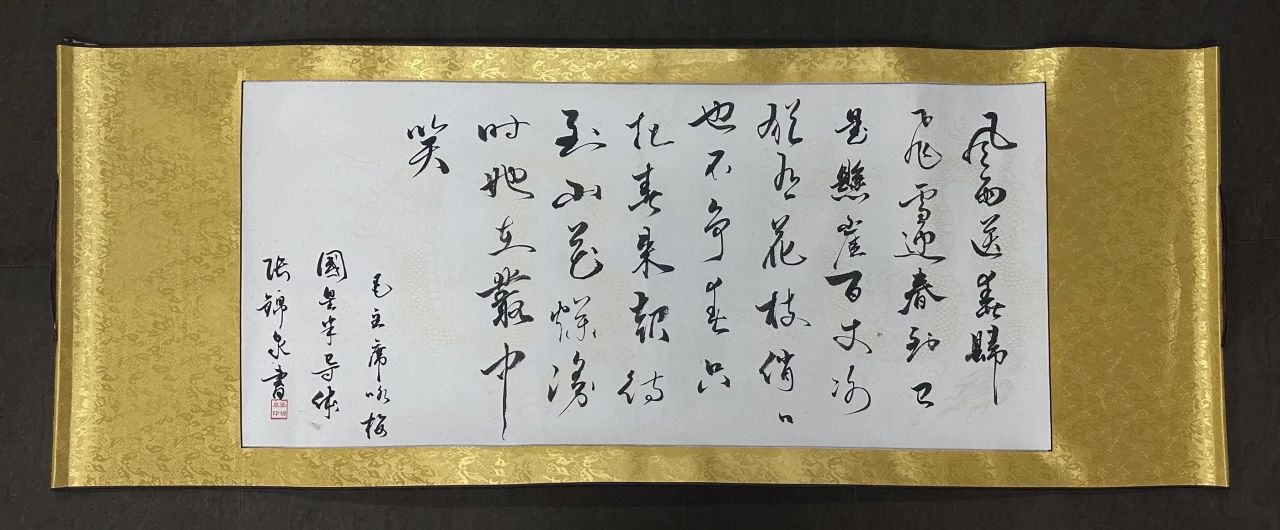 风雨送春歸
飛雪迎春到已
是懸崖百丈冰
猶有花枝俏〻
也不争春只
把春来報待
到山花爛漫
时她在叢中
笑
毛主席咏梅
國星半导体
张錦泉書